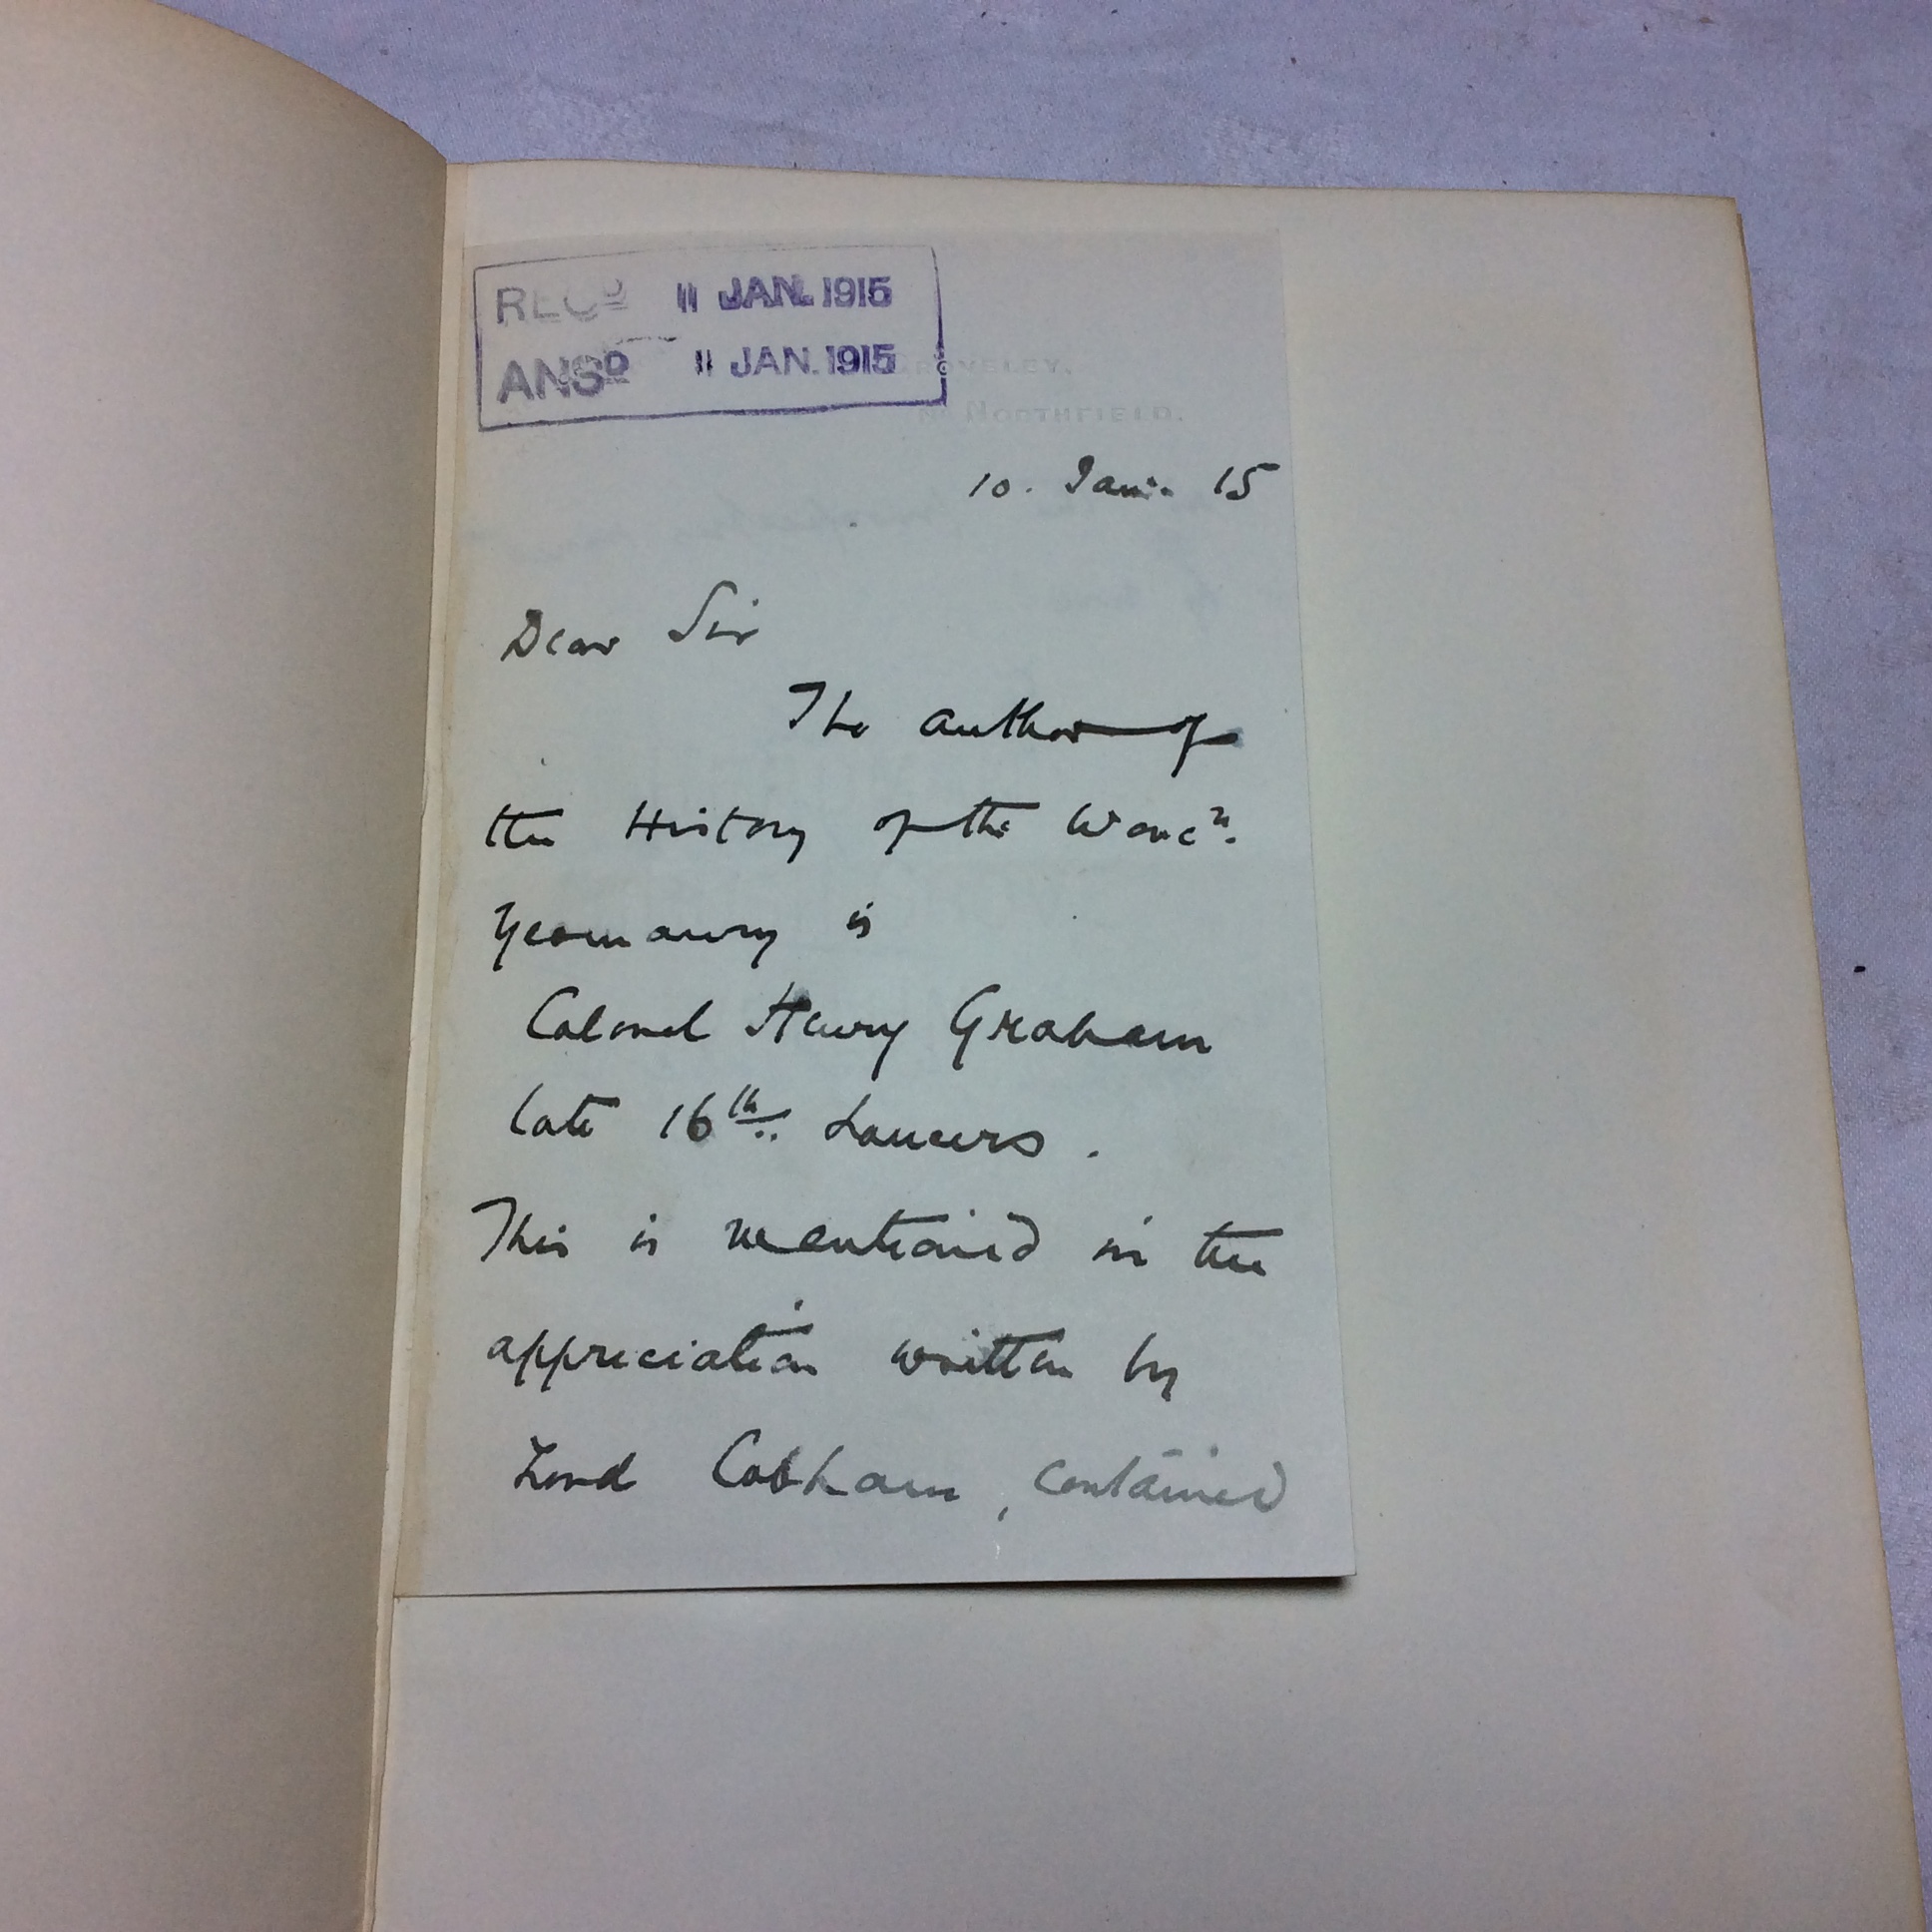 RECD 11 JAN. 1915
ANSD 11 JAN. 1915
GROVELEY,
Nr NORTHFIELD.
10. Jan: 15
Dear Sir
The author of
the History of the Worcr.
Yeomanry is
Colonel Henry Graham
late 16th. Lancers.
This is mentioned in the
appreciation written by
Lord Cobham, contained